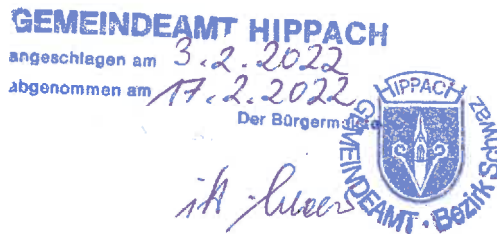 GEMEINDEAMT HIPPACH
angeschlagen am 3.2.2022
abgenommen am 17.2.2022
Der Bürgermeister
HIPPACH
GEMEINDEAMT · Bezirk Schwaz